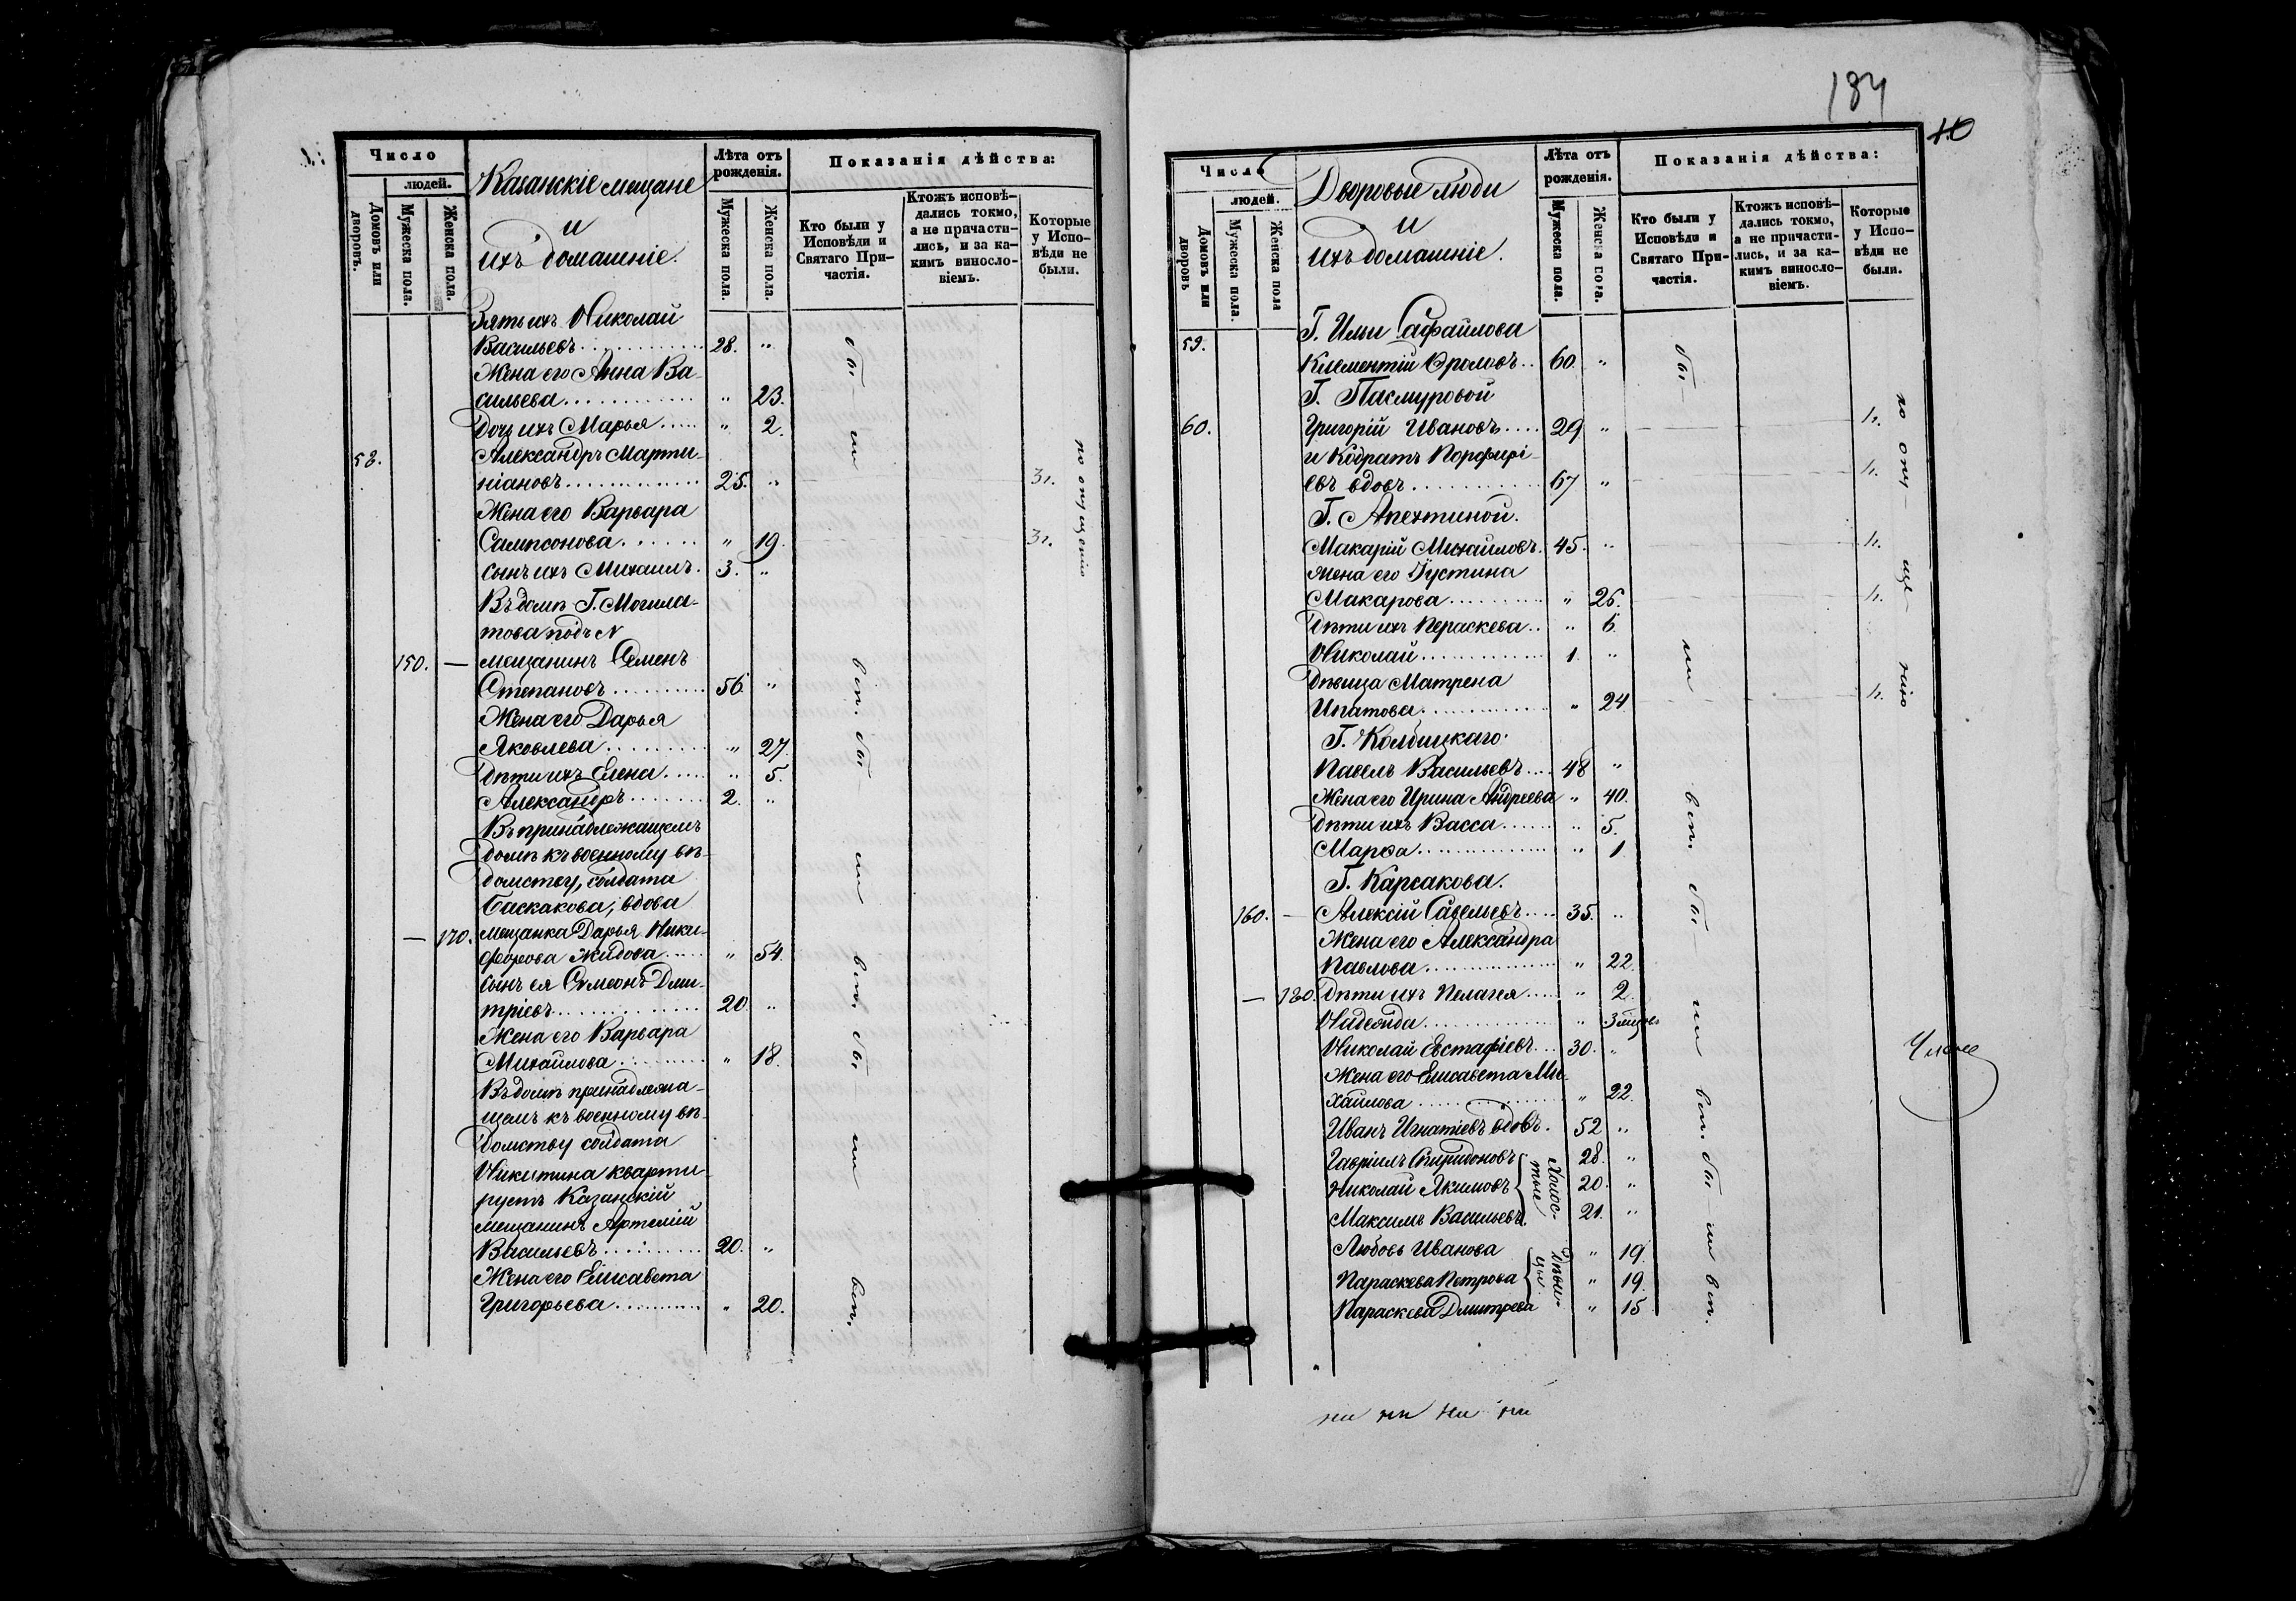 Число
людей.
Домовъ или дворовъ.
Мужеска пола.
Женска пола.
Казанскіе мещане
и
ихъ домашніе.
Лѣта отъ рожденія.
Мужеска пола.
Женска пола.
Показанія дѣйства:
Кто были у Исповѣди и Святаго Причастія.
Ктожъ исповѣдались токмо, а не причастились, и за какимъ винословіемъ.
Которые у Исповѣди не были.
Зять ихъ Николай
Васильевъ 28. "
Жена его Анна Ва-
сильева " 23.
Дочь ихъ Марья " 2.
58. Александръ Марти-
ніановъ 25. "
Жена его Варвара
Сампсонова " 19.
сынъ ихъ Михаилъ 3. "
Въ домѣ Г. Могила-
това подъ N
150. — мещанинъ Семенъ
Степановъ 56 "
Жена его Дарья
Яковлева " 27.
Дѣти ихъ Елена " 5.
Александръ 2. "
Въ принадлежащемъ
домѣ къ военному вѣ-
домству, солдата
Баскакова, вдова
— 170. мещанка Дарья Ники-
форова Жидова " 54.
Сынъ ея Симеонъ Дми-
тріевъ 20. "
Жена его Варвара
Михайлова " 18.
Въ домѣ принадлежа-
щемъ къ военному вѣ-
домству солдата
Никитина кварти-
руетъ Казанскій
мещанинъ Артемій
Васильевъ 20. "
Жена его Елисавета
Григорьева " 20.
бы — ли
вѣт. бы — ли
по опущенію
184
10
Число
людей.
Домовъ или дворовъ
Мужеска пола.
Женска пола
Дворовые люди
и
ихъ домашніе.
Лѣта отъ рожденія.
Мужеска пола.
Женска пола.
Показанія дѣйства:
Кто были у Исповѣди и Святаго Причастія.
Ктожъ исповѣдались токмо, а не причастились, и за какимъ винословіемъ.
Которые у Исповѣди не были.
59. Г. Ильи Сафайлова
Климентій Фроловъ 60. "
Г. Пасмуровой
60. Григорій Ивановъ 29 "
и Кодратъ Порфирі-
евъ вдовъ 67 "
Г. Апехтиной.
Макарій Михайловъ 45. "
Жена его Іустина
Макарова " 26.
Дѣти ихъ Пераскева " 6.
Николай 1. "
Дѣвица Матрена
Ипатова " 24
Г. Колбицкаго.
Павелъ Васильевъ 48 "
Жена его Ирина Андреева " 40.
Дѣти ихъ Васса " 5.
Марѳа " 1
Г. Карсакова.
160. — Алексій Савельевъ 35. "
Жена его Александра
Павлова " 22.
— 180. Дѣти ихъ Пелагея " 2.
Надежда " 3 мѣсяц.
Николай Евстафіевъ 30. "
Жена его Елисавета Ми-
хайлова " 22.
Иванъ Игнатіевъ вдовъ. 52 "
Гавріилъ Спиридоновъ 28. "
Николай Акимовъ 20. "
Максимъ Васильевъ. 21. "
Холос-
тые
Любовь Иванова " 19.
Параскева Петрова " 19.
Параскева Дмитрева " 15
Дѣви-
цы
бы — ли
по опу — ще — нію
ни ни ни ни